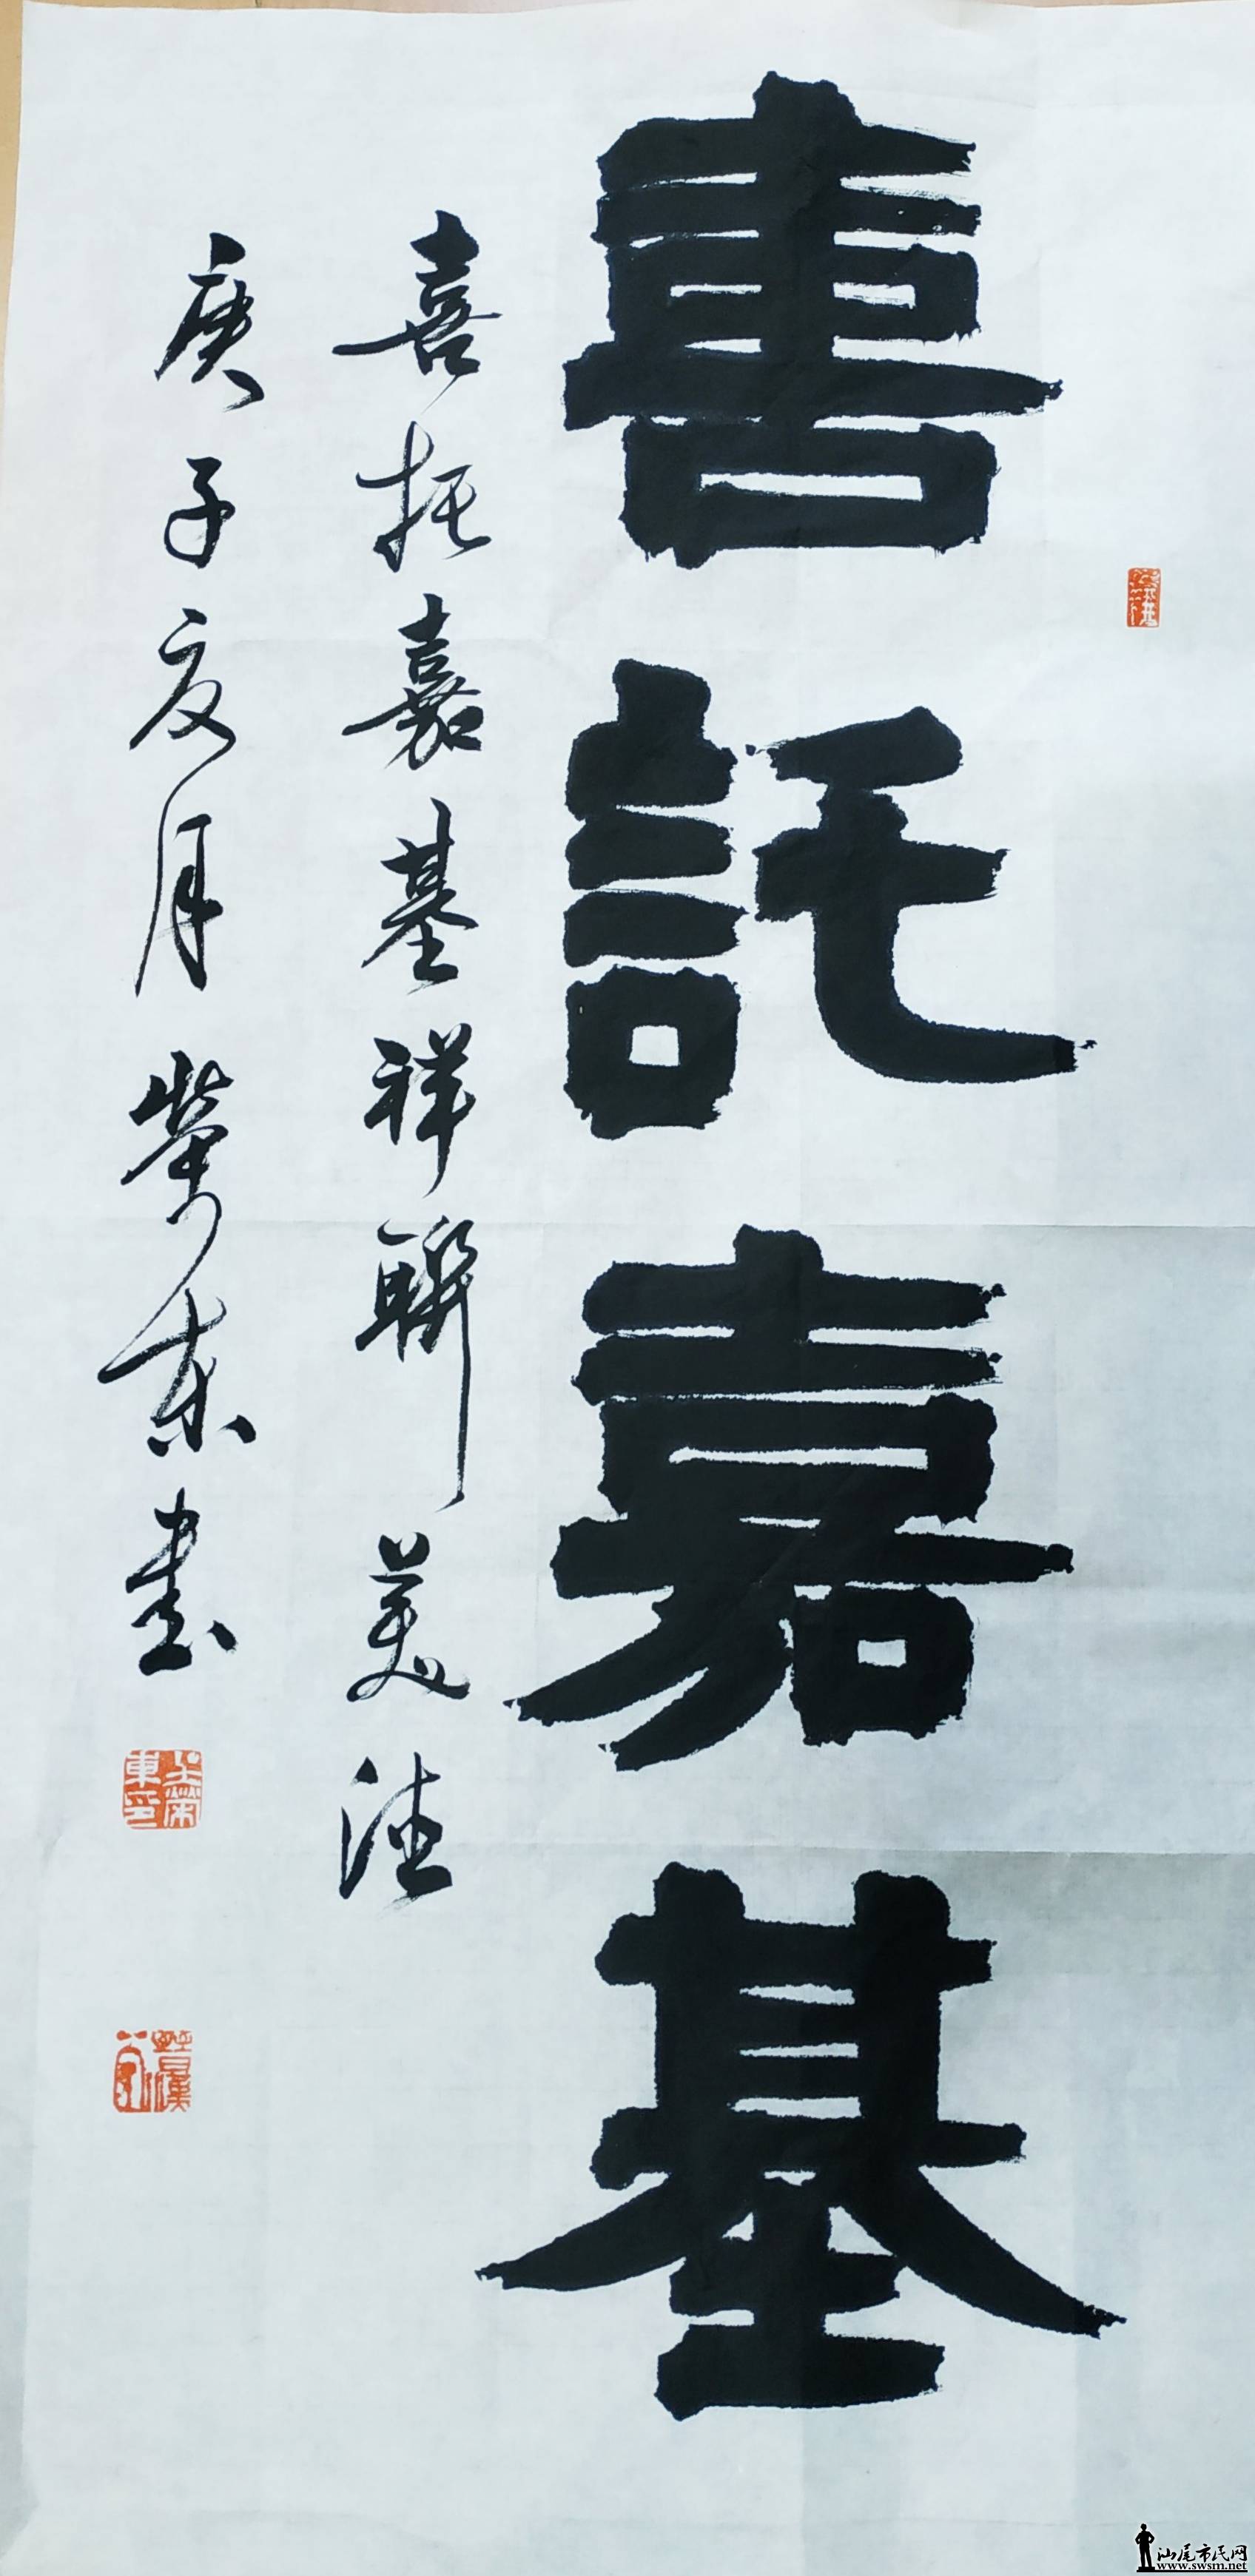 喜託嘉基
喜托嘉基祥聯美
庚子夏月荣东书
汕尾市民网
www.swsm.net